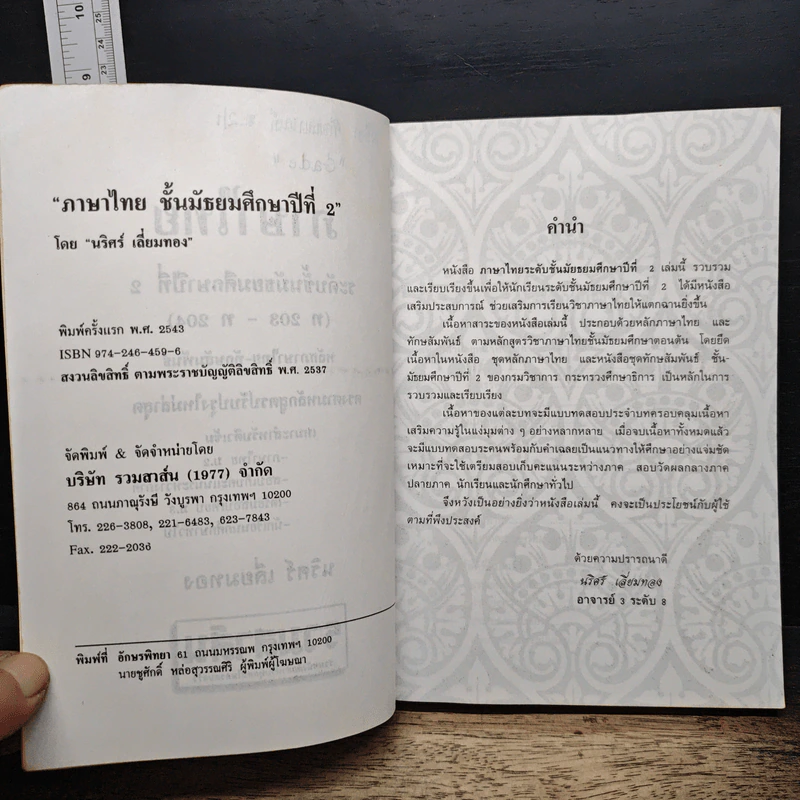 "ภาษาไทย ชั้นมัธยมศึกษาปีที่ 2"
โดย "นริศร์ เลี่ยมทอง"
พิมพ์ครั้งแรก พ.ศ. 2543
ISBN 974-246-459-6
สงวนลิขสิทธิ์ ตามพระราชบัญญัติลิขสิทธิ์ พ.ศ. 2537
จัดพิมพ์ & จัดจำหน่ายโดย
บริษัท รวมสาส์น (1977) จำกัด
864 ถนนภาณุรังษี วังบูรพา กรุงเทพฯ 10200
โทร. 226-3808, 221-6483, 623-7843
Fax. 222-2036
พิมพ์ที่ อักษรพิทยา 61 ถนนมหรรณพ กรุงเทพฯ 10200
นายชูศักดิ์ หล่อสุวรรณศิริ ผู้พิมพ์ผู้โฆษณา
คำนำ
หนังสือ ภาษาไทยระดับชั้นมัยธยมศึกษาปีที่ 2 เล่มนี้ รวบรวม
และเรียบเรียงขึ้นเพื่อให้นักเรียนระดับชั้นมัธยมศึกษาปีที่ 2 ได้มีหนังสือ
เสริมประสบการณ์ ช่วยเสริมการเรียนวิชาภาษาไทยให้แตกฉานยิ่งขึ้น
เนื้อหาสาระของหนังสือเล่มนี้ ประกอบด้วยหลักภาษาไทย และ
ทักษสัมพันธ์ ตามหลักสูตรวิชาภาษาไทยชั้นมัธยมศึกษาตอนต้น โดยยึด
เนื้อหาในหนังสือ ชุดหลักภาษาไทย และหนังสือชุดทักษสัมพันธ์ ชั้น-
มัธยมศึกษาปีที่ 2 ของกรมวิชาการ กระทรวงศึกษาธิการ เป็นหลักในการ
รวบรวมและเรียบเรียง
เนื้อหาของแต่ละบทจะมีแบบทดสอบประจำบทครอบคลุมเนื้อหา
เสริมความรู้ในแง่มุมต่าง ๆ อย่างหลากหลาย เมื่อจบเนื้อหาทั้งหมดแล้ว
จะมีแบบทดสอบระคนพร้อมกับคำเฉลยเป็นแนวทางให้ศึกษาอย่างแจ่มชัด
เหมาะที่จะใช้เตรียมสอบเก็บคะแนนระหว่างภาค สอบวัดผลกลางภาค
ปลายภาค นักเรียนและนักศึกษาทั่วไป
จึงหวังเป็นอย่างยิ่งว่าหนังสือเล่มนี้ คงจะเป็นประโยชน์กับผู้ใช้
ตามที่พึงประสงค์
ด้วยความปรารถนาดี
นริศร์ เลี่ยมทอง
อาจารย์ 3 ระดับ 8